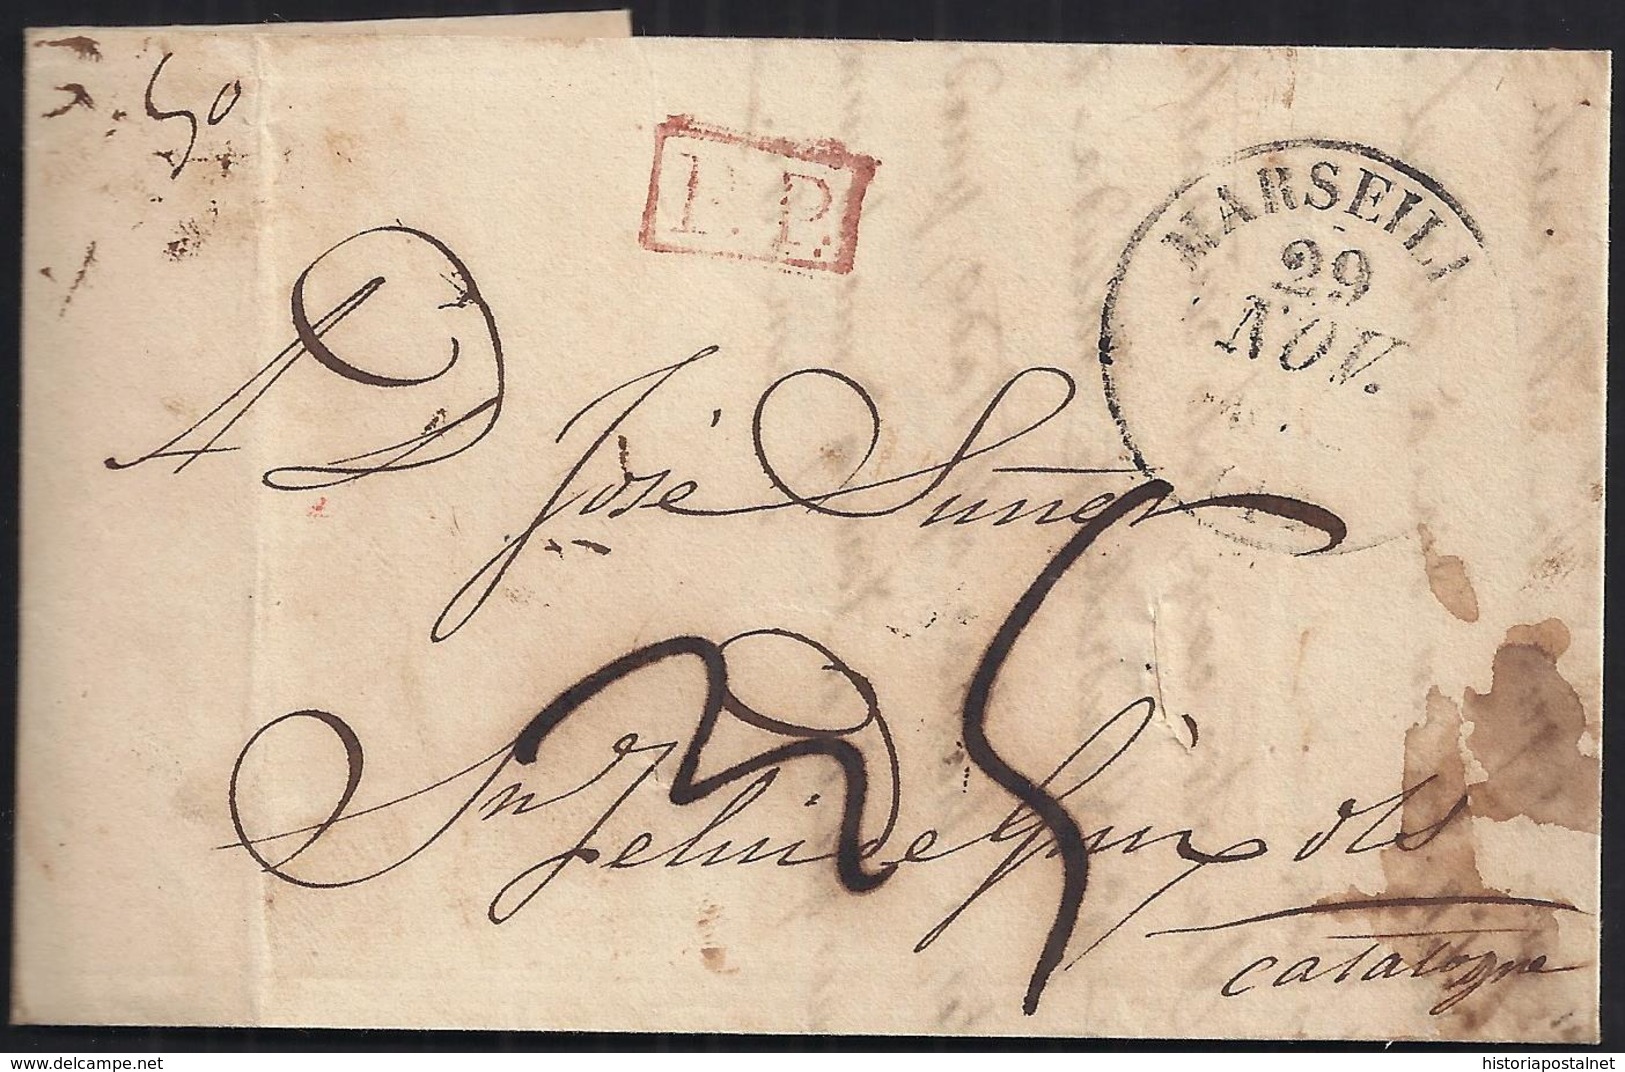 50
P.P.
MARSEILL
29
NOV.
A D José Suñer
Sn Feliu de Guixols
catalogne
25
www.delcampe.net
historiapostalnet